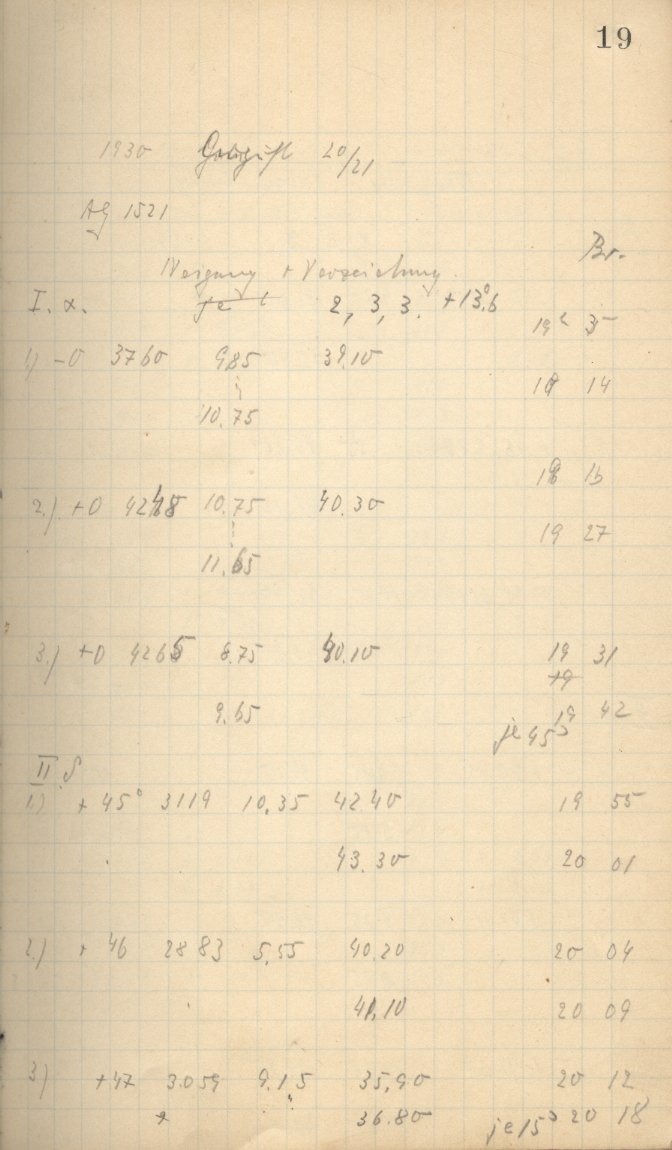 19
1930 20/21
AG 1521
Br.
Neigung + Verzeichnung.
I. α. je 2, 3, 3. +13°.6
19h 5
1) -0 3760 9.85 39.10
14
10.75
16
2.) +0 10.75 40.30
19 27
11.65
3.) +0 4265 8.75 40.10 19 31
19
9.65 19 42
je 45s
II. δ
1.) + 45° 3119 10.35 42.40 19 55
43.30 20 01
2.) + 46 2883 5.55 40.20 20 04
41.10 20 09
3) +47 3.059 9.15 35.90 20 12
36.80 je 15s 20 18